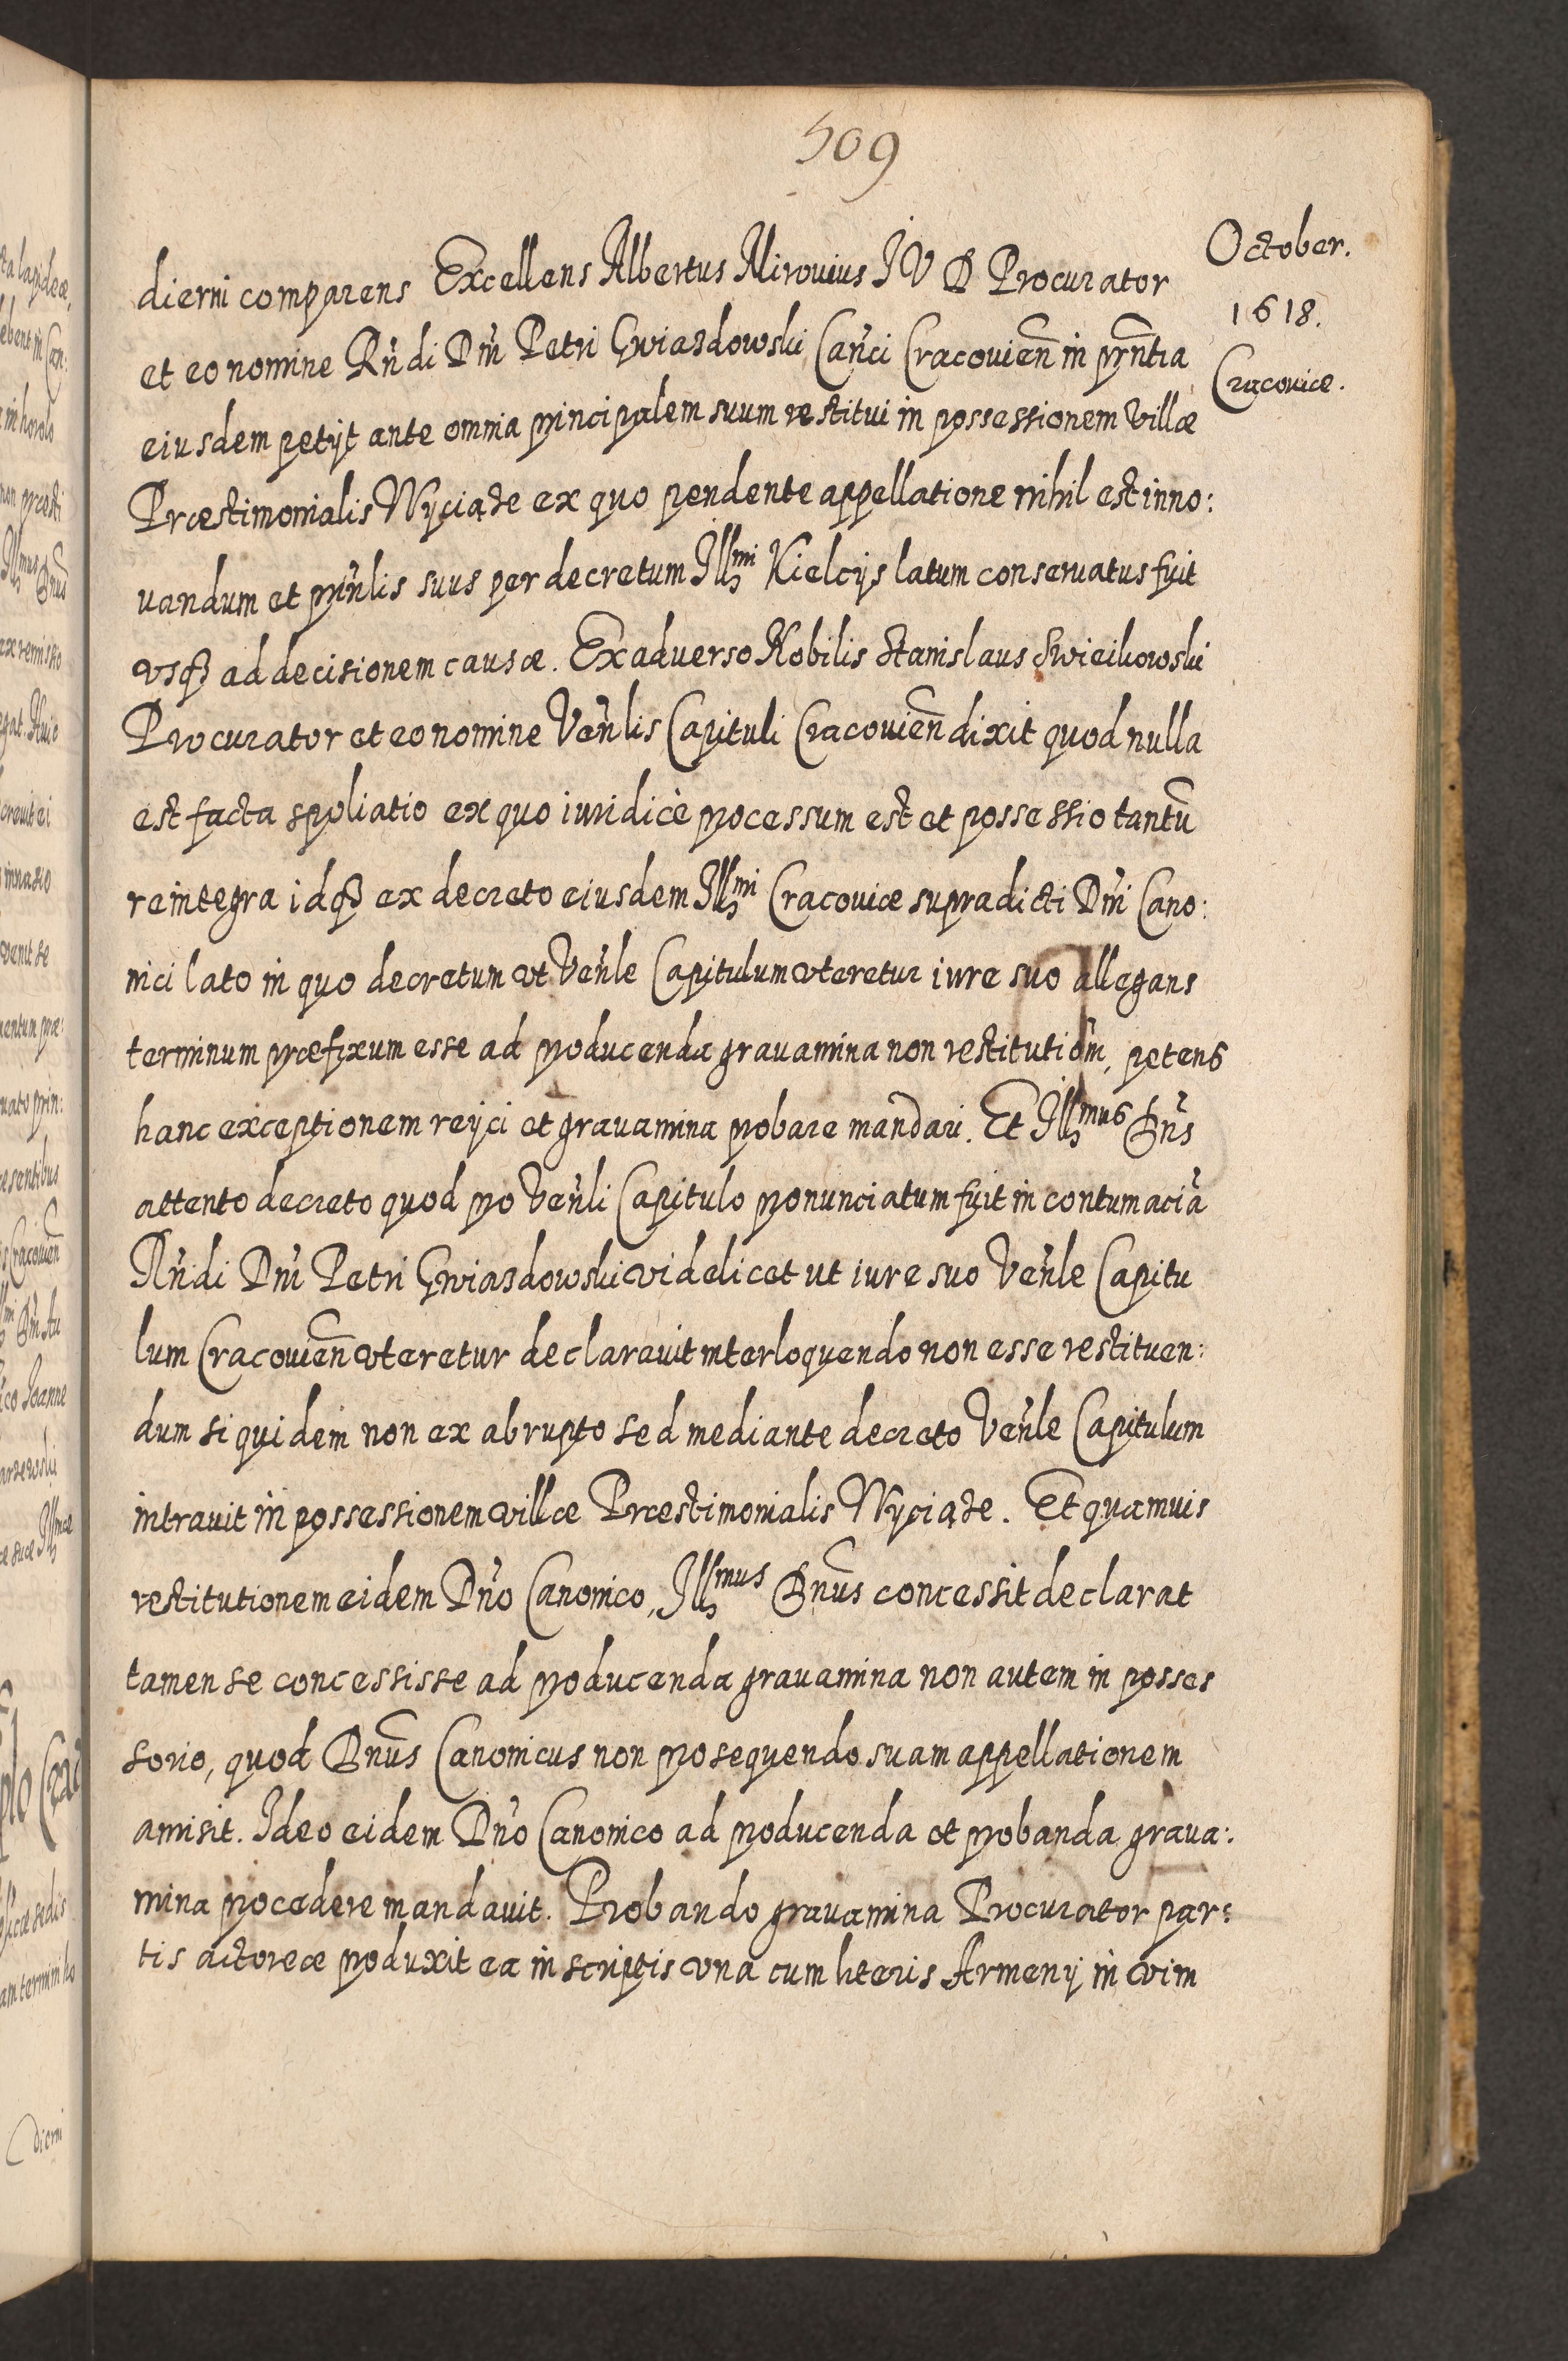 509
October.
1618.
Cracoviæ.
dierni comparens Excellens Albertus Mirovius I V D Procurator
et eo nomine Rñdi Dñi Petri Gwiazdowski Cañci Cracovieñ in pñtia
eiusdem petÿt ante omnia principalem suum restitui in possessionem villæ
Præstimonialis Wyciąże ex quo pendente appellatione nihil est inno:
uandum et prinlis suus per decretum Illmi Kielcÿs latum conseruatus fuit
vsqꝫ ad decisionem causæ. Ex aduerso Nobilis Stanislaus Swiecikowski
Procurator et eo nomine Veñlis Capituli Cracouieñ dixit quod nulla
est facta spoliatio ex quo iuridicè processum est et possessio tantũ
reintegra idqꝫ ex decreto eiusdem Illmi Cracouiæ supradicti Dñi Cano:
nici lato in quo decretum vt Veñle Capitulum vteretur iure suo allegans
terminum præfixum esse ad producenda grauamina non restitutiom̃, petens
hanc exceptionem reÿci et grauamina probare mandari. Et Illmus Dñs
attento decreto quod pro Veñli Capitulo pronunciatum fuit in contumaciã
Rñdi Dñi Petri Gwiazdowski videlicet ut iure suo Veñle Capitu
lum Cracouieñ vteretur declarauit interloquendo non esse restituen:
dum siquidem non ex abrupto sed mediante decreto Veñle Capitulum
intrauit in possessionem villæ Præstimonialis Wyciąże. Et quamuis
restitutionem eidem Dño Canonico, Illmus Dnũs concessit declarat
tamen se concessisse ad producenda grauamina non autem in posses
sorio, quod Dnũs Canonicus non prosequendo suam appellationem
amisit. Ideo eidem Dño Canonico ad producenda et probanda graua:
mina procedere mandauit. Probando grauamina Procurator par:
tis actoreæ produxit ea in scriptis vna cum literis Armenÿ in vim